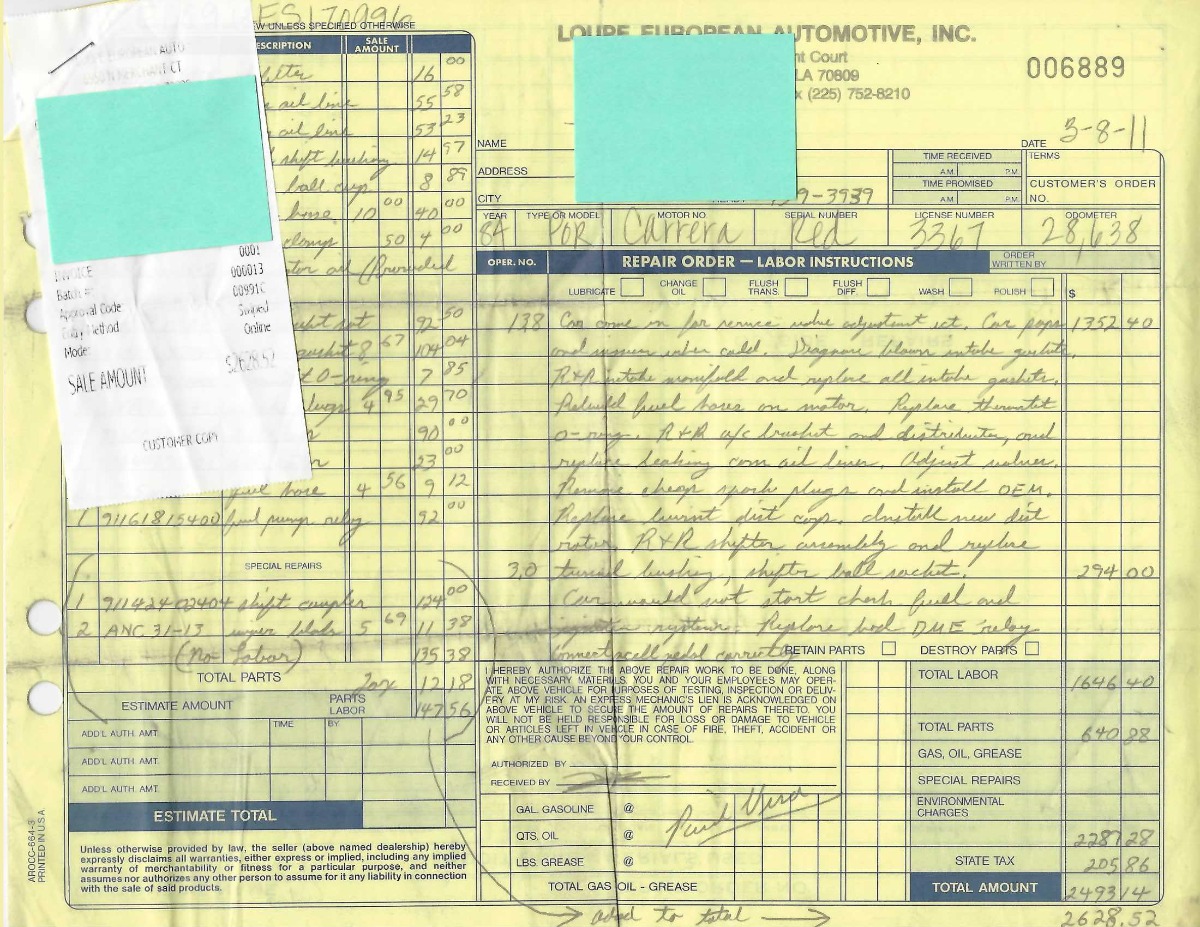 ES170096
LOUPE EUROPEAN AUTOMOTIVE, INC.
nt Court
LA 70809
(225) 752-8210
006889
W UNLESS SPECIFIED OTHERWISE
ESCRIPTION SALE AMOUNT
16 00
oil line 55 58
oil line 53 23
shift bushing 14 97
ball cup 8 89
hose 10 00 40 00
clamps 50 4 00
tor oil
92 50
8 67 104 04
O-ring 7 85
plugs 4 95 29 70
90 00
23 00
fuel hose 4 56 9 12
1 91161815400 fuel pump relay 92 00
SPECIAL REPAIRS
1 91142402404 shift coupler 124 00
2 ANC 31-13 wiper blade 5 69 11 38
(No Labor) 135 38
TOTAL PARTS Tax 12 18
ESTIMATE AMOUNT PARTS LABOR 147 56
ADD'L AUTH. AMT. TIME BY
ADD'L AUTH. AMT.
ADD'L AUTH. AMT.
ESTIMATE TOTAL
Unless otherwise provided by law, the seller (above named dealership) hereby
expressly disclaims all warranties, either express or implied, including any implied
warranty of merchantability or fitness for a particular purpose, and neither
assumes nor authorizes any other person to assume for it any liability in connection
with the sale of said products.
AROCC-664-3
PRINTED IN U.S.A.
EUROPEAN AUTO
MERCHANT CT
0001
INVOICE 000013
Batch #: 
Approval Code 00991C
Entry Method Swiped
Mode: Online
SALE AMOUNT $2628.52
CUSTOMER COPY
NAME
ADDRESS
CITY 9-3939
DATE 3-8-11
TIME RECEIVED A.M. P.M.
TIME PROMISED A.M. P.M.
TERMS
CUSTOMER'S ORDER NO.
YEAR TYPE OR MODEL MOTOR NO. SERIAL NUMBER LICENSE NUMBER ODOMETER
84 POR Carrera Red 3367 28,638
OPER. NO. REPAIR ORDER — LABOR INSTRUCTIONS ORDER WRITTEN BY
LUBRICATE CHANGE OIL FLUSH TRANS. FLUSH DIFF. WASH POLISH $
138 Car come in for service valve adjustment ect. Car pops 1352 40
and misses when cold. Diagnose blown intake gaskets.
R+R intake manifold and replace all intake gaskets.
Rebuild fuel hoses on motor. Replace thermostat
o-ring. R+R a/c bracket and distributor, and
replace leaking cam oil lines. Adjust valves.
Remove cheap spark plugs and install OEM.
Replace burnt dist cap. Install new dist
rotor. R+R shifter assembly and replace
3.0 tunnel bushing, shifter ball socket. 294 00
Car would not start check fuel and
system. Replace bad DME relay
RETAIN PARTS DESTROY PARTS
I HEREBY AUTHORIZE THE ABOVE REPAIR WORK TO BE DONE, ALONG
WITH NECESSARY MATERIALS. YOU AND YOUR EMPLOYEES MAY OPER-
ATE ABOVE VEHICLE FOR PURPOSES OF TESTING, INSPECTION OR DELIV-
ERY AT MY RISK. AN EXPRESS MECHANIC'S LIEN IS ACKNOWLEDGED ON
ABOVE VEHICLE TO SECURE THE AMOUNT OF REPAIRS THERETO. YOU
WILL NOT BE HELD RESPONSIBLE FOR LOSS OR DAMAGE TO VEHICLE
OR ARTICLES LEFT IN VEHICLE IN CASE OF FIRE, THEFT, ACCIDENT OR
ANY OTHER CAUSE BEYOND YOUR CONTROL.
AUTHORIZED BY
RECEIVED BY
GAL. GASOLINE @
QTS. OIL @
LBS. GREASE @
TOTAL GAS OIL - GREASE
Paid Visa
TOTAL LABOR 1646 40
TOTAL PARTS 640 88
GAS, OIL, GREASE
SPECIAL REPAIRS
ENVIRONMENTAL CHARGES
2287 28
STATE TAX 205 86
TOTAL AMOUNT 2493 14
added to total 2628.52